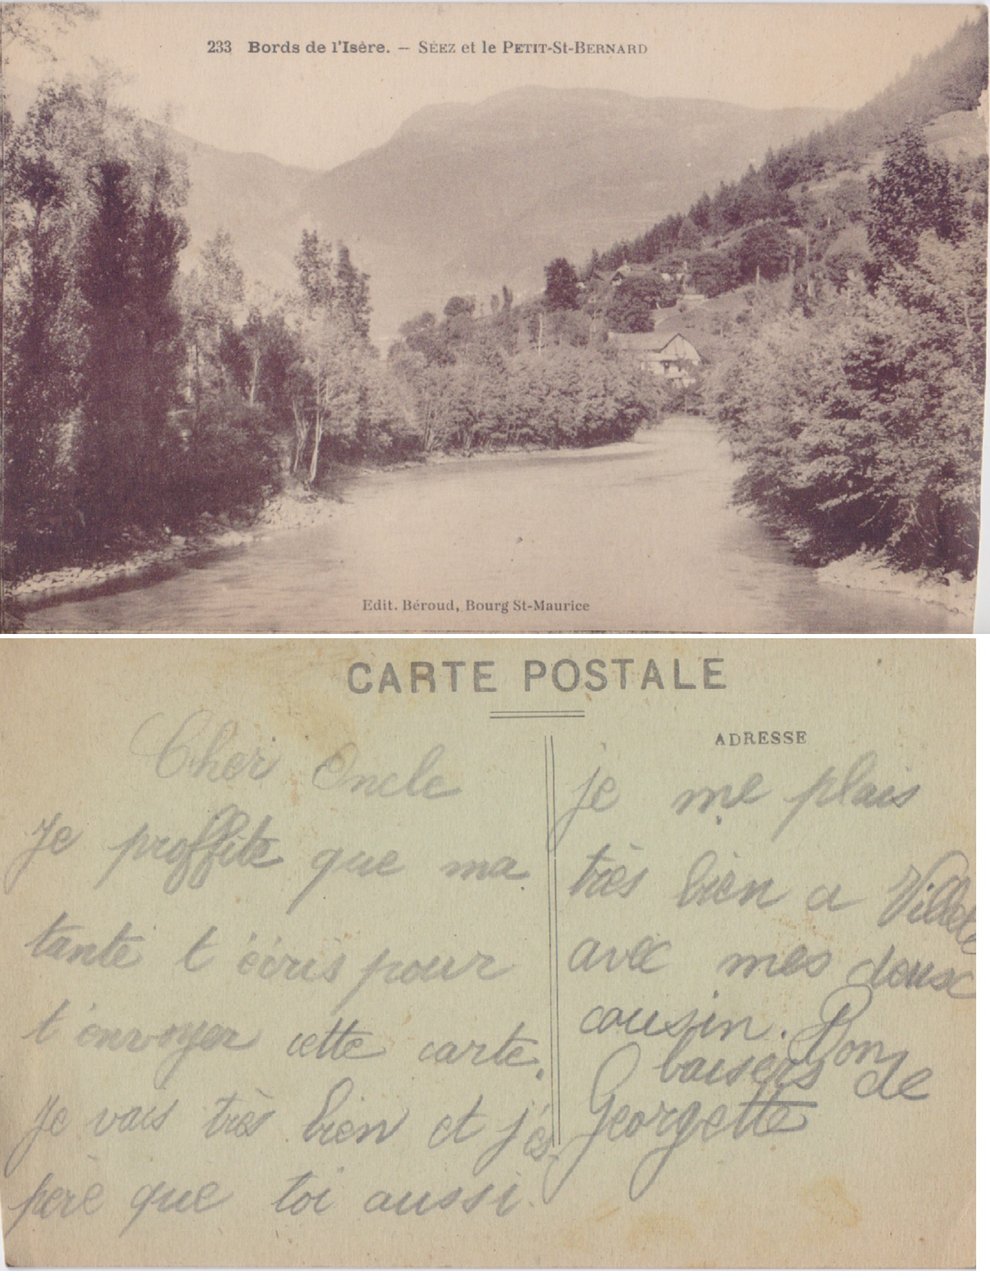 233 Bords de l'Isère. – SÉEZ et le PETIT-St-BERNARD
Edit. Béroud, Bourg St-Maurice
CARTE POSTALE
Cher Oncle
Je proffite que ma
tante t'écris pour
t'envoyer cette carte.
Je vais très bien et j'és
père que toi aussi.
ADRESSE
je me plais
très bien a Villete
avec mes deux
cousin. Bon
baisers de
Georgette